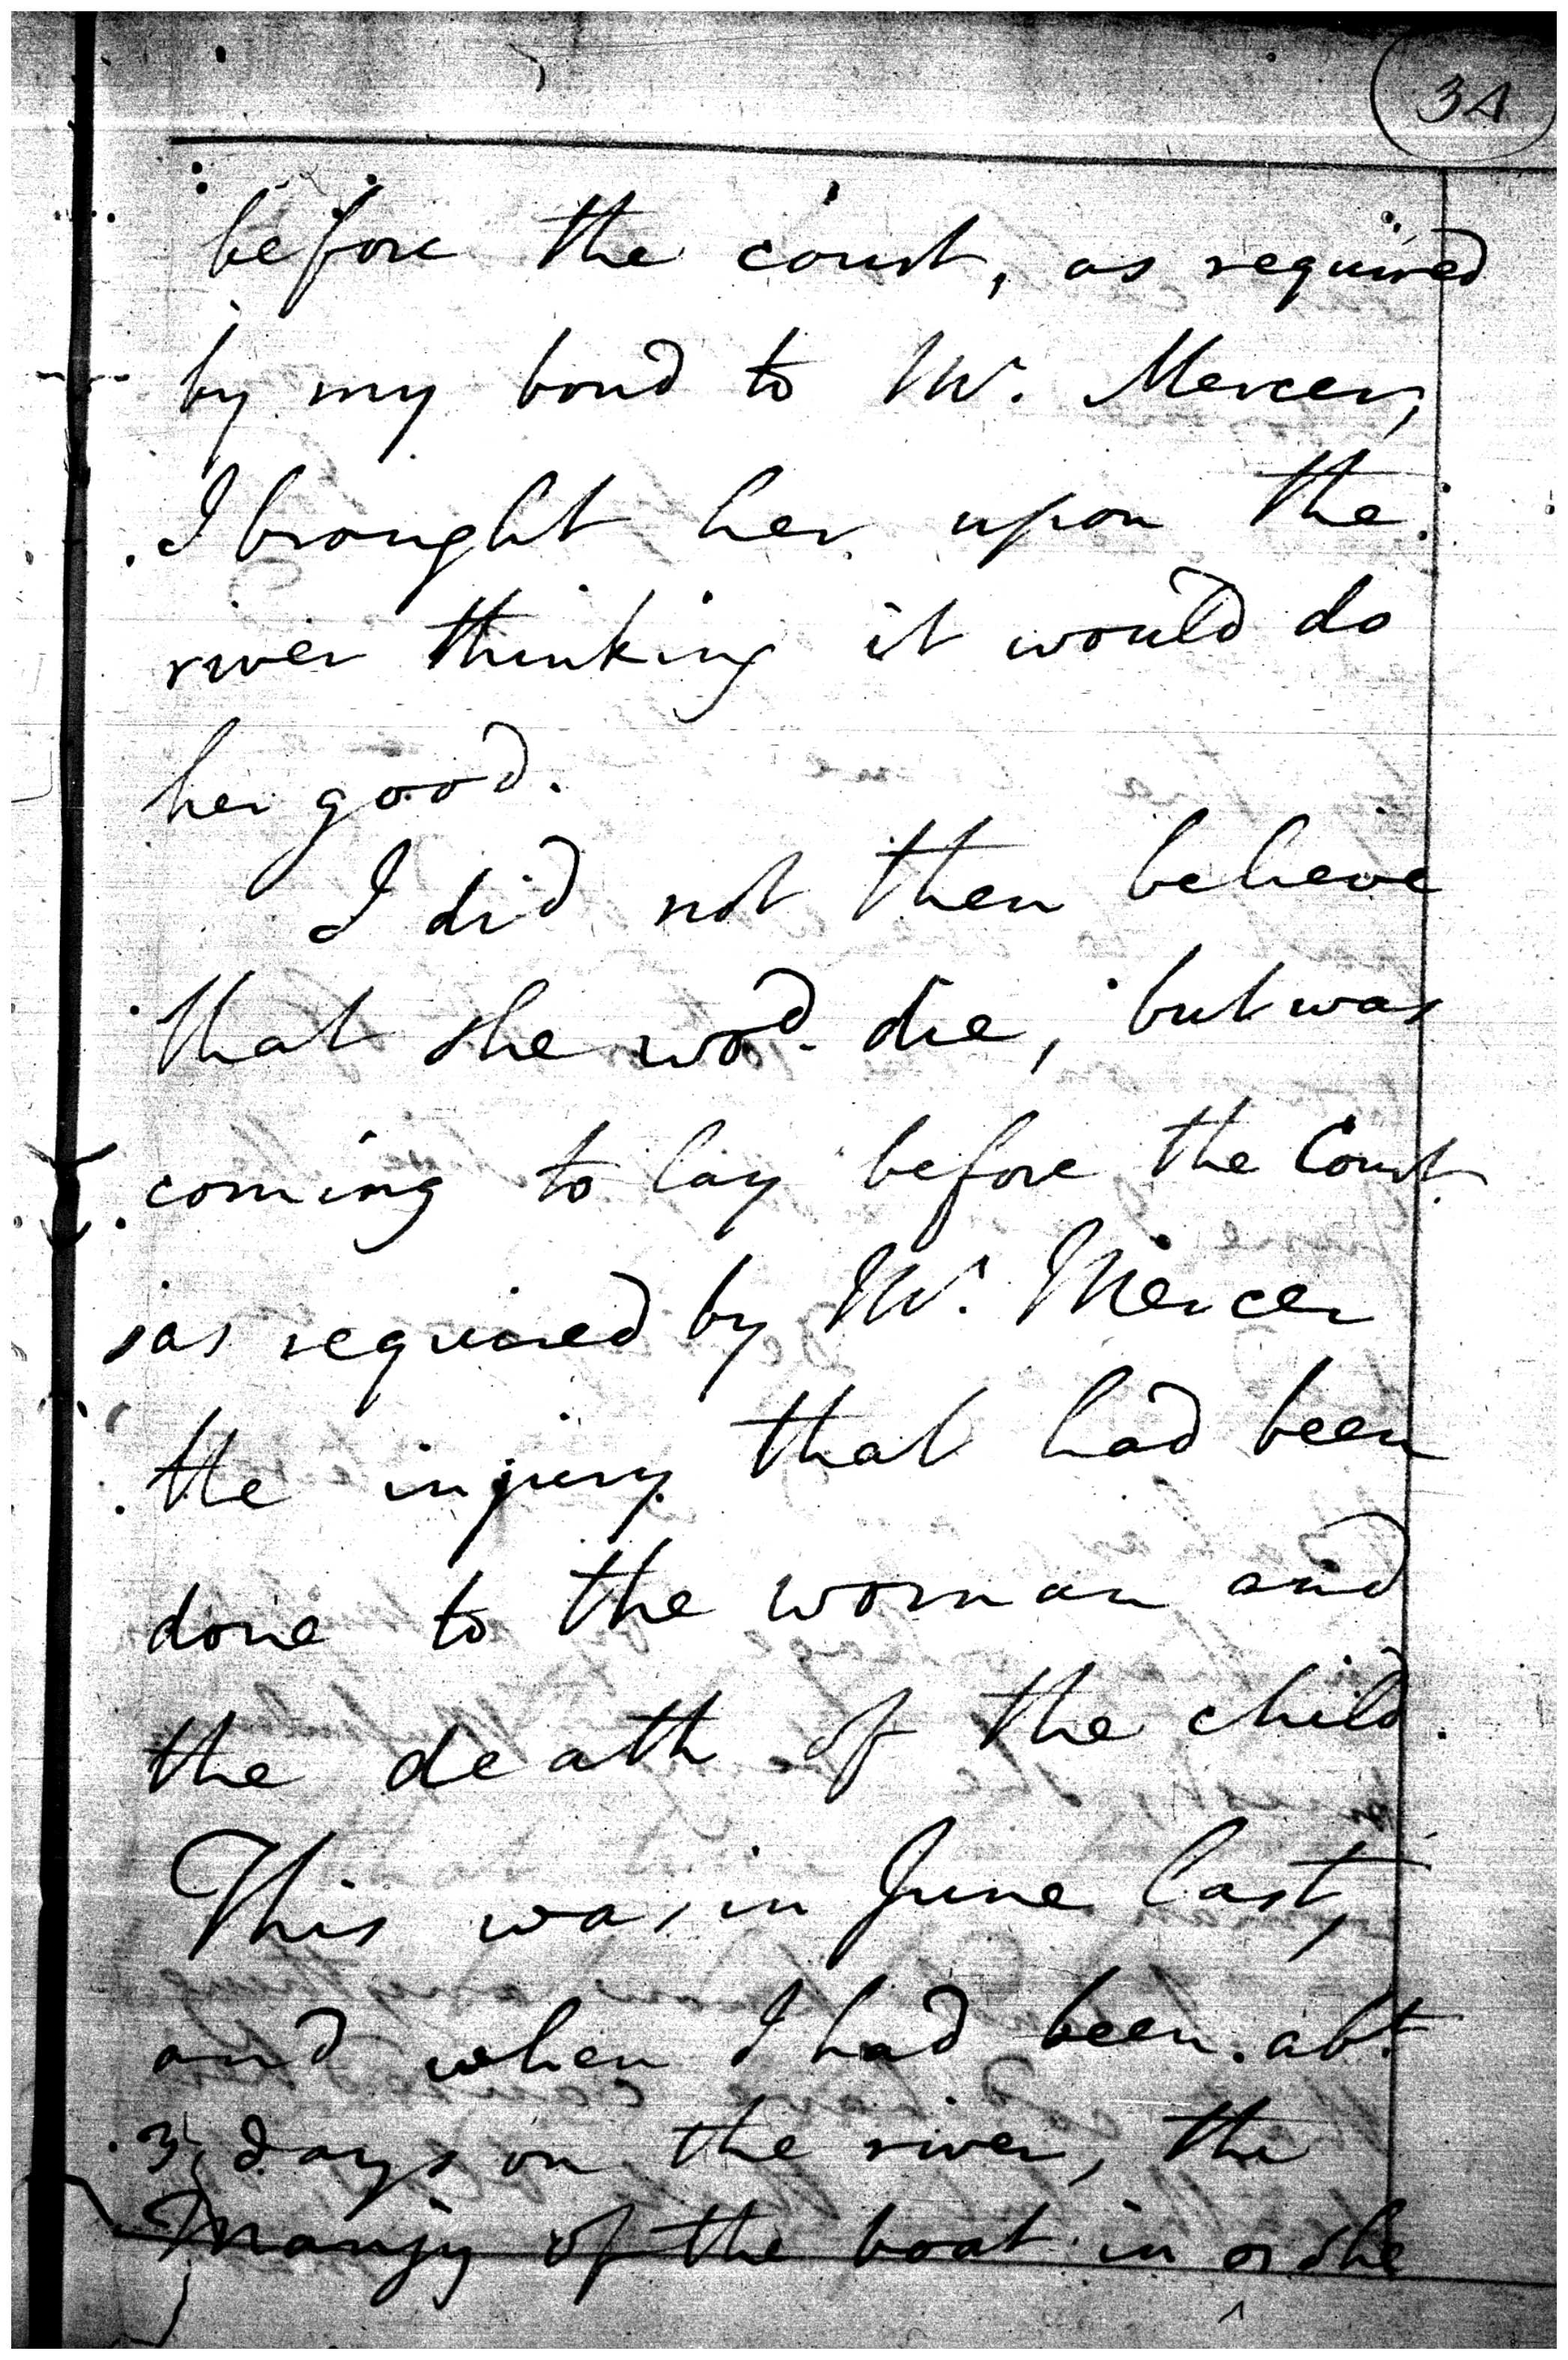 34
before the court, as required
by my bond to Mr. Mercer,
I brought her upon the
river thinking it would do
her good.
I did not then believe
that she wod. die, but was
coming to lay before the Court
as required by Mr. Mercer
the injury that had been
done to the woman and
the death of the child.
This was in June last,
and when I had been abt.
3 days on the river, the
Manjy of the boat in